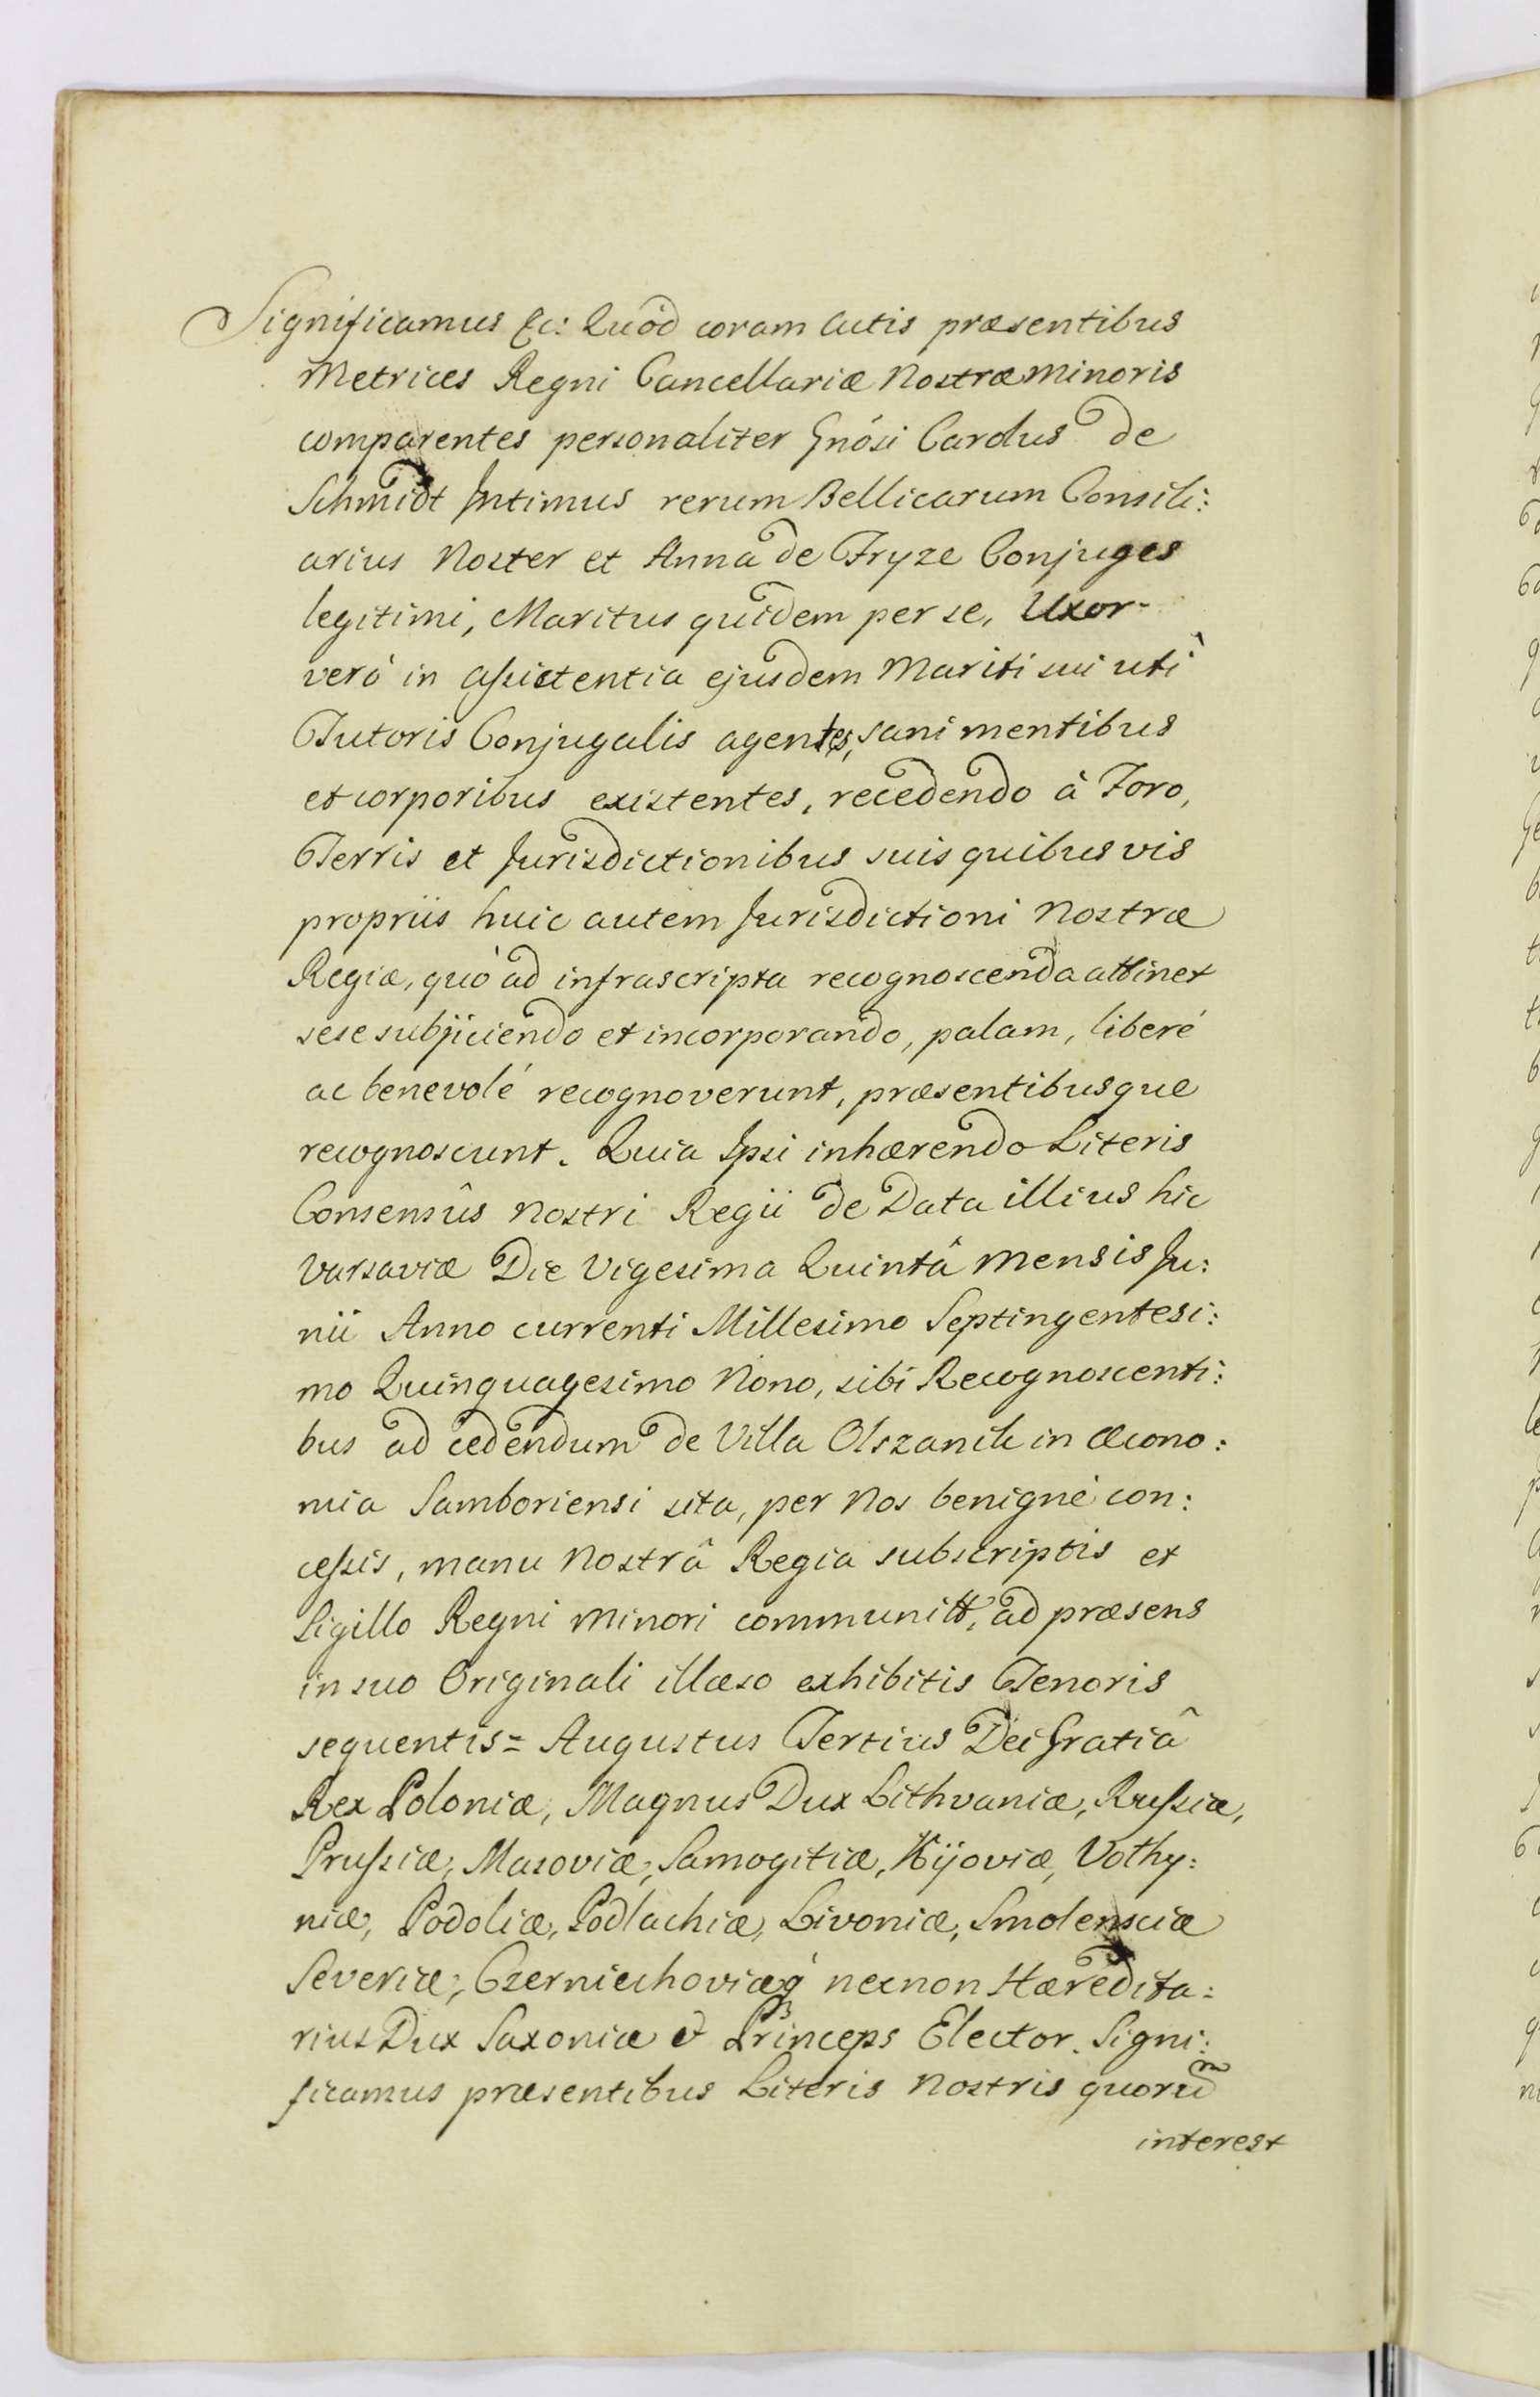 Significamus &c: Quòd coram Actis præsentibus
Metrices Regni Cancellariæ Nostræ Minoris
comparentes personaliter Gnósi Carolus de
Schmidt Intimus rerum Bellicarum Consili:
arius Noster et Anna de Fryze Conjuges
legitimi, Maritus quidem per se, Uxor
verò in assistentia ejusdem Mariti sui utì
Tutoris Conjugalis agentes, sani mentibus
et corporibus existentes, recedendo à Foro,
Terris et Jurisdictionibus suis quibusvis
propriis huic autem Jurisdictioni Nostræ
Regiæ, quò ad infrascripta recognoscenda attinet
sese subjiciendo et incorporando, palam, liberé
ac benevolé recognoverunt, præsentibusque
recognoscunt. Quia Ipsi inhærendo Literis
Consensûs Nostri Regii de Data illius hic
Varsaviæ Die Vigesima Quintâ Mensis Ju:
nii Anno currenti Millesimo Septingentesi:
mo Quinquagesimo Nono, sibi Recognoscenti:
bus ad cedendum de Villa Olszanik in Œcono:
mia Samboriensi sita, per Nos benignè con:
cessis, manu Nostrâ Regia subscriptis et
Sigillo Regni Minori communitt, ad præsens
in suo Originali illæso exhibitis Tenoris
sequentis = Augustus Tertius Dei Gratiâ
Rex Poloniæ, Magnus Dux Lithvaniæ, Russiæ,
Prussiæ, Masoviæ, Samogitiæ, Kijoviæ, Volhy:
niæ, Podoliæ, Podlachiæ, Livoniæ, Smolensciæ
Severiæ, Czerniechoviæq necnon Hæredita:
rius Dux Saxoniæ & Princeps Elector. Signi:
ficamus præsentibus Literis Nostris quorũ
interest